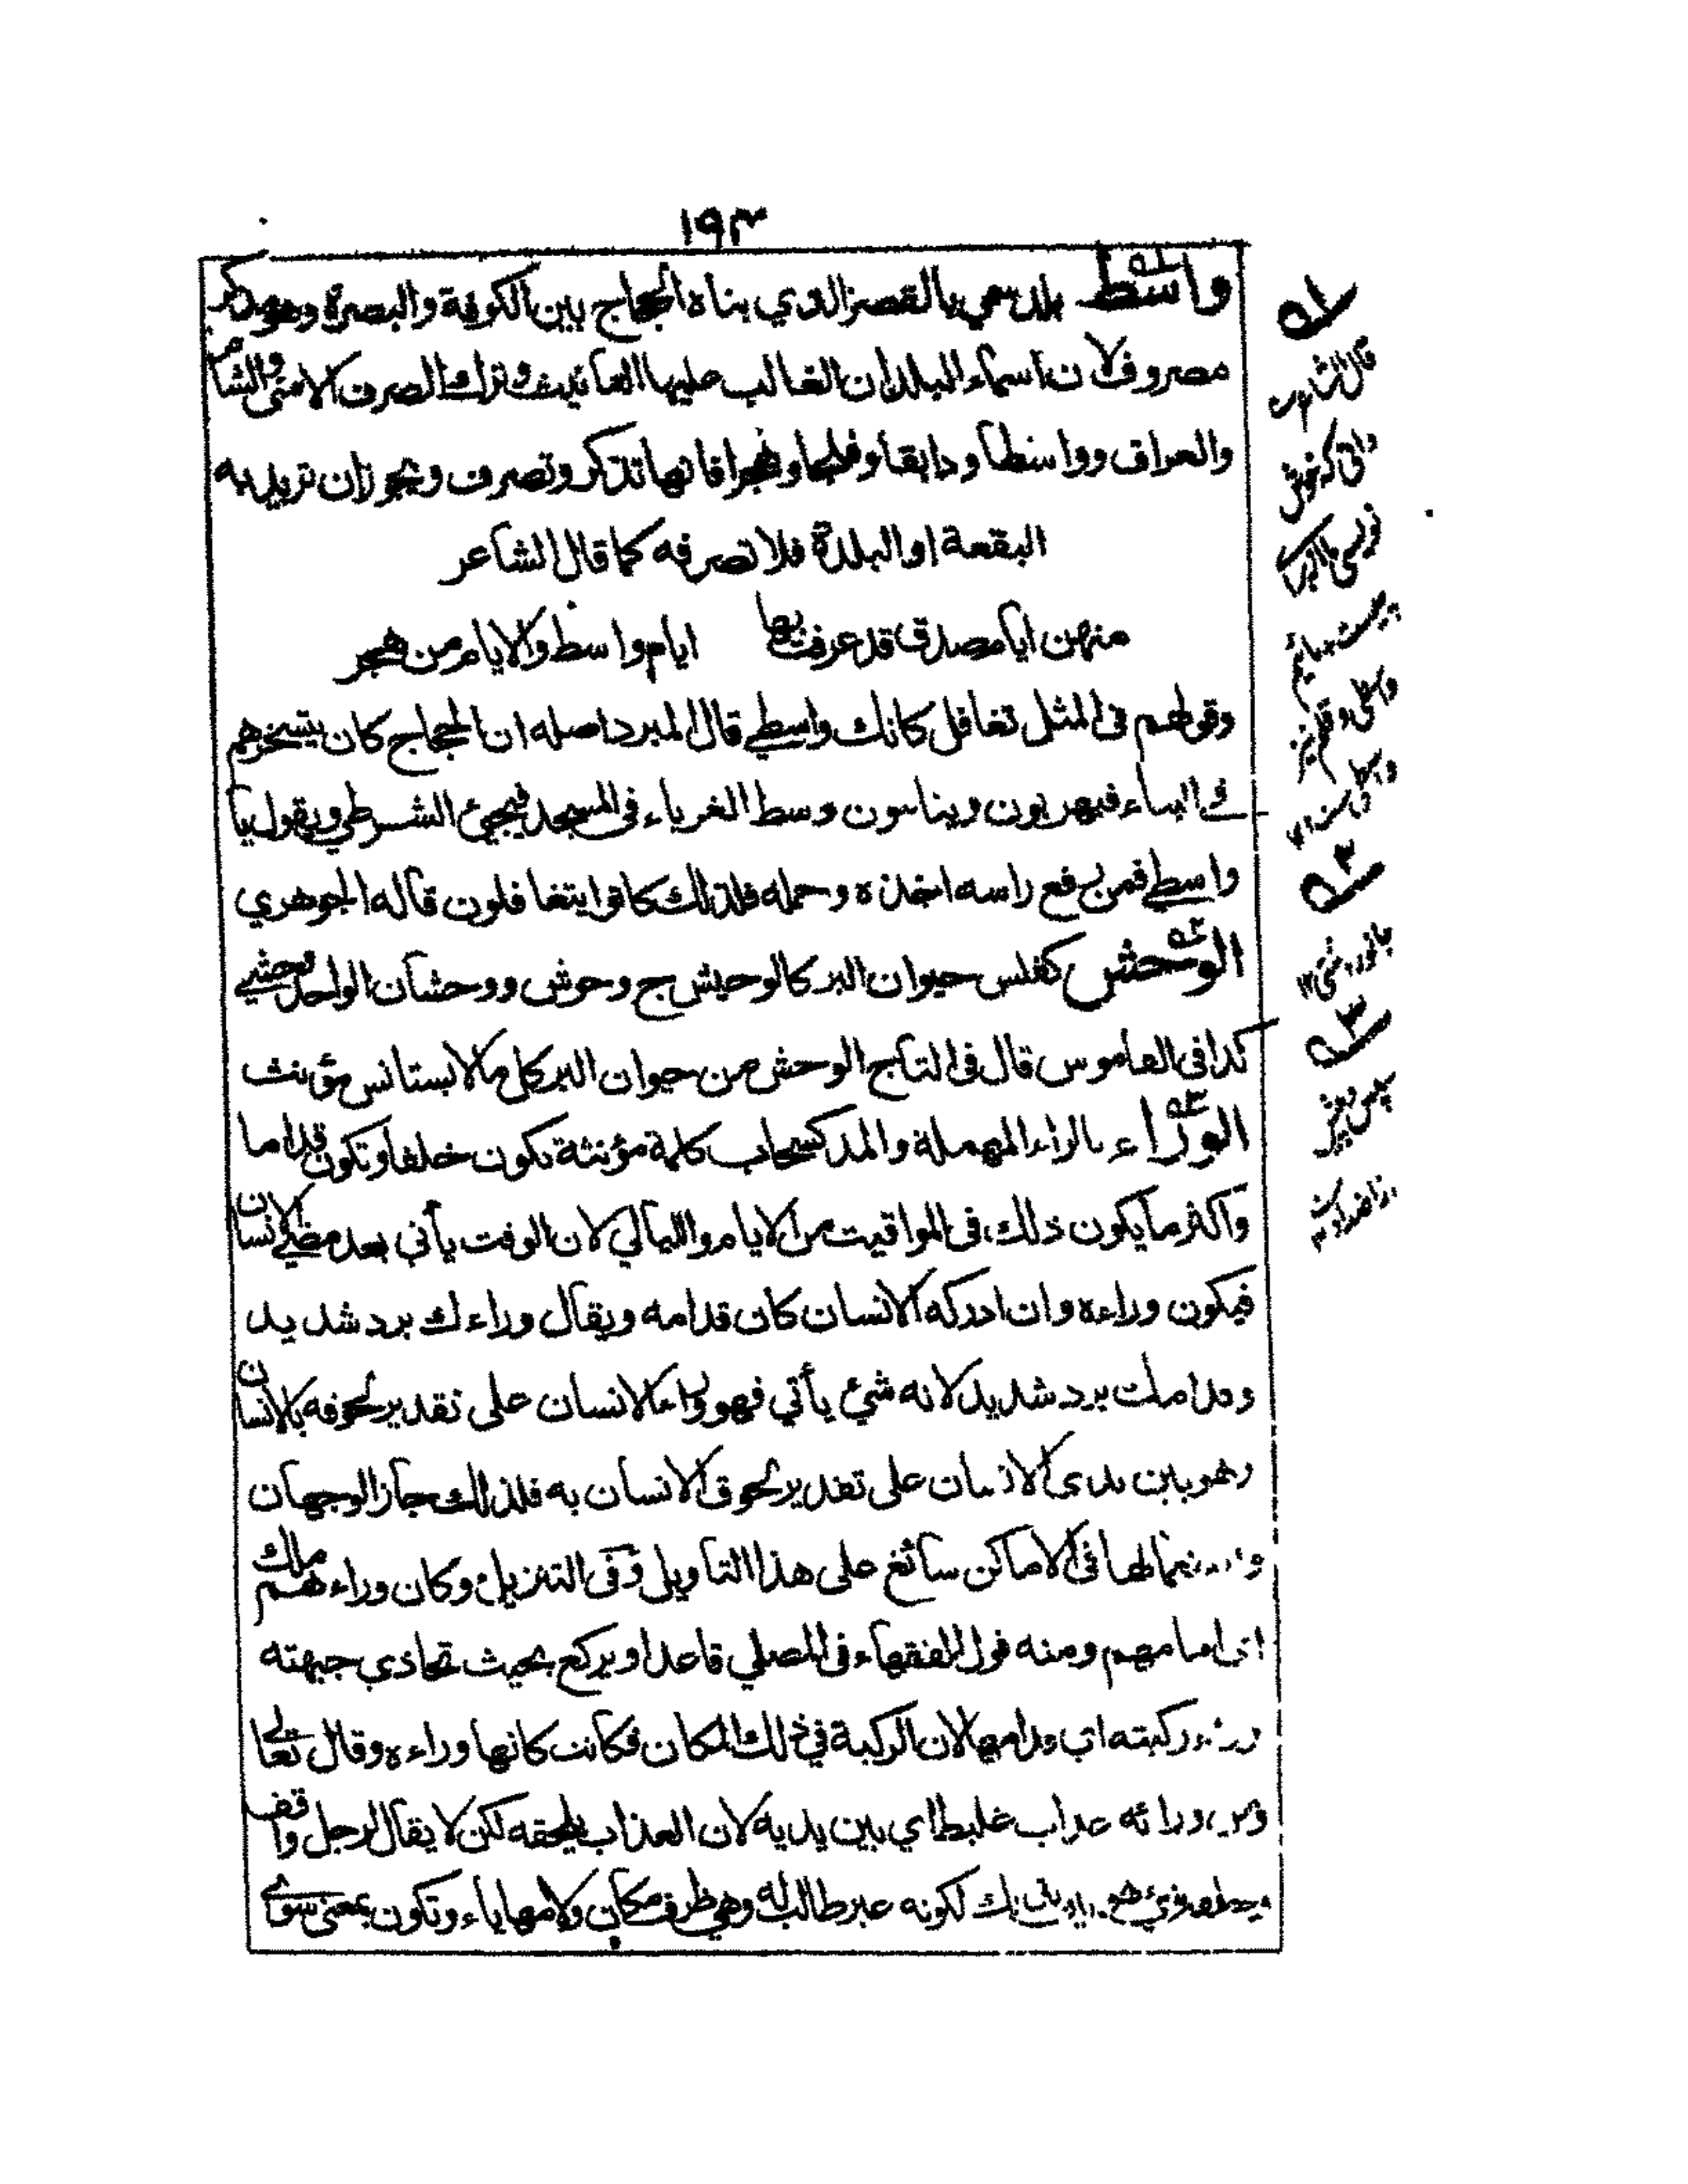 ۱۹۳
واسط بلد سمي بالقصر الذي بناه الحجاج بين الكوفة والبصرة وهو مذكر
مصروف لان اسماء البلدان الغالب عليها التانيث وترك الصرف الا منى والشام
والعراق وواسطا ودابقا وفلجا وهجرا فانها تذكر وتصرف ويجوز ان تريد به
البقعة او البلدة فلا تصرفه كما قال الشاعر
منهن ايام صدق قد عرفت بها ايام واسط والايام من هجر
وقولهم فى المثل تغافل كانك واسطي قال المبرد اصله ان الحجاج كان يتسخرهم
في البناء فيهربون وينامون وسط الغرباء فى المسجد فيجيئ الشرطي ويقول يا
واسطي فمن رفع راسه اخذه وحمله فلذلك كانوا يتغافلون قاله الجوهري
الوحش كفلس حيوان البر كالوحيش ج وحوش ووحشان الواحد وحشي
كذا فى القاموس قال فى التاج الوحش من حيوان البر كل ما لا يستانس مؤنث
الوراء بالراء المهملة والمد كسحاب كلمة مؤنثة تكون خلفا وتكون قداما
واكثر ما يكون ذلك فى المواقيت من الايام والليالي لان الوقت يأتي بعد مضي الانسان
فيكون وراءه وان ادركه الانسان كان قدامه ويقال وراءك برد شديد
وقدامك برد شديد لانه شئ يأتي فهو وراء الانسان على تقدير لحوقه بالانسان
وهو بين يدى الانسان على تقدير لحوق الانسان به فلذلك جاز الوجهان
واستعمالها فى الاماكن سائغ على هذا التاويل وفى التنزيل وكان وراءهم ملك
اى امامهم ومنه قول الفقهاء فى المصلي قاعدا ويركع بحيث تحاذي جبهته
وراء ركبته اي قدامها لان الركبة في ذلك المكان فكانت كانها وراءه وقال تعالى
ومن ورائه عذاب غليظ اي بين يديه لان العذاب يلحقه لكن لا يقال لرجل واقف
وخلفه شئ هو بين يديك لكونه غير طالب له وهي ظرف مكان ولامها ياء وتكون بمعنى سوى
۵۱
۵۲
۵۳